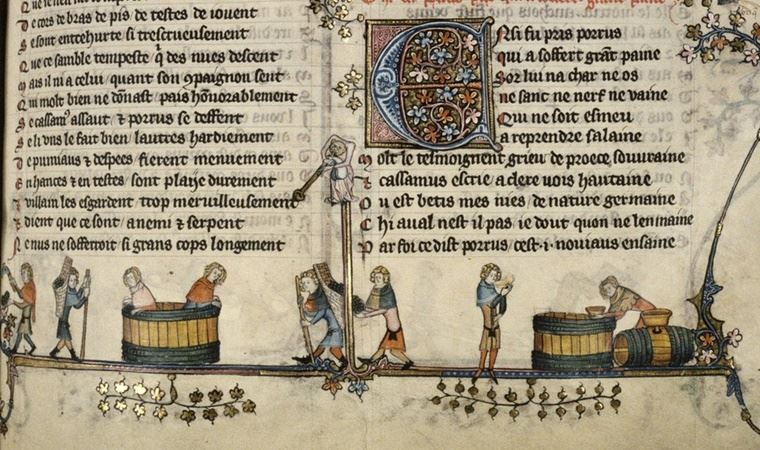 De cors de bras de pis de testes de iouent
Se sont entehurte si tresc̃ueusement
Que ce samble tempeste q̃ des nues descent
Mais il ni a celui quant son 9paignon sent
Qui molt bien ne donast pais honorablement
Se cassam9 assaut ⁊ porrus se deffent
Se li uns le fait bien lautres hardiement
De pumiaus ⁊ despees fierent menuement
En hances ⁊ en testes sont plaije durement
⁊ uillain les esgardent trop merueilleusement
⁊ dient que ce sont anemi ⁊ serpent
Nenus ne sofferroit si grans cops longement
Ensi fu pris porrus
qui a soffert grãt paine
Sor lui na char ne os
ne sanc ne nerf ne uaine
Qui ne soit esmeu
a reprendre salaine
Molt le telmoignent grieu de proece souuraine
⁊ cassamus escrie a clere uois hautaine
Ou est betis mes nies de nature germaine
Chi aual nest il pas ie dout quon ne lenmaine
Par foi ce dist porrus cest .i. nouiaus ensaine